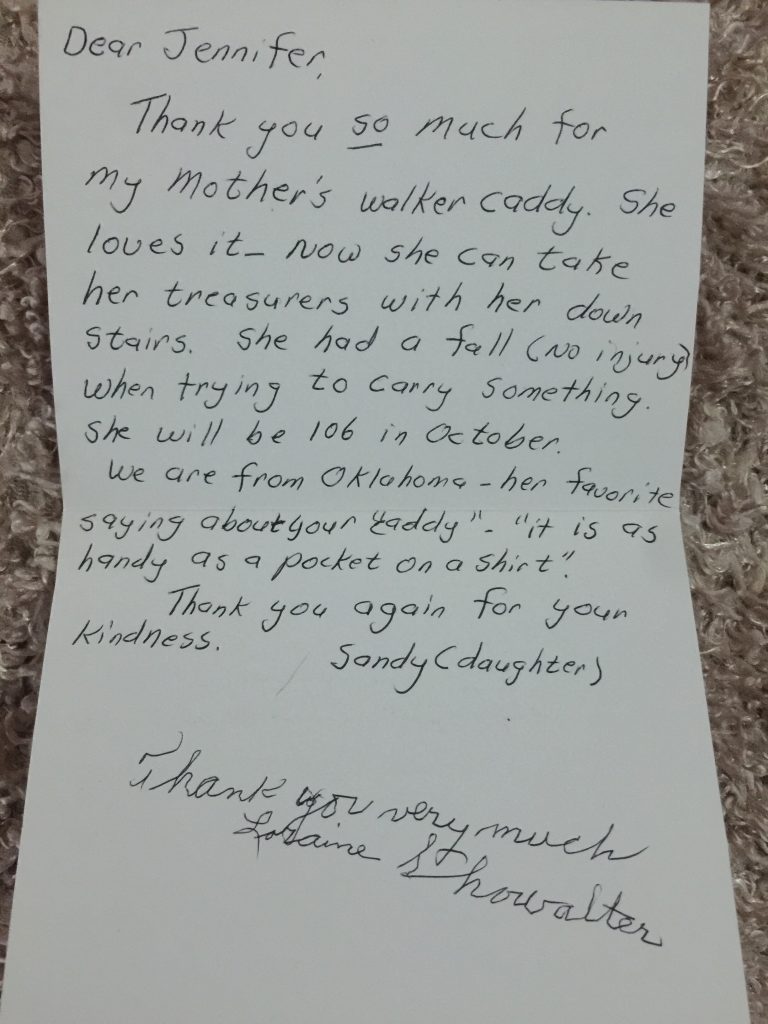 Dear Jennifer,
Thank you so much for
my Mother's walker caddy. She
loves it - Now she can take
her treasurers with her down
stairs. She had a fall (No injury)
when trying to carry something.
She will be 106 in October.
We are from Oklahoma - her favorite
saying about your "caddy" - "it is as
handy as a pocket on a shirt".
Thank you again for your
kindness. Sandy (daughter)
Thank you very much
Loraine Showalter